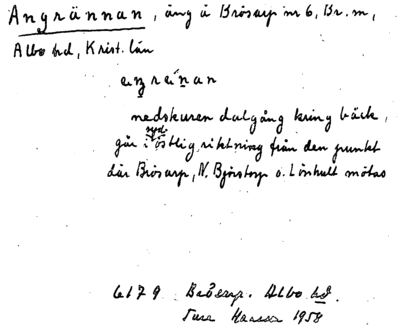 Angrännan, äng å Brösarp nr 6, Br. m,
Albo hd, Krist. län
nedskuren dalgång kring bäck,
syd
går i östlig riktning från den punkt
där Brösarp, N. Björstorp o. Lönhult mötas
6179 Brösarp. Albo hd.
Ture 1958